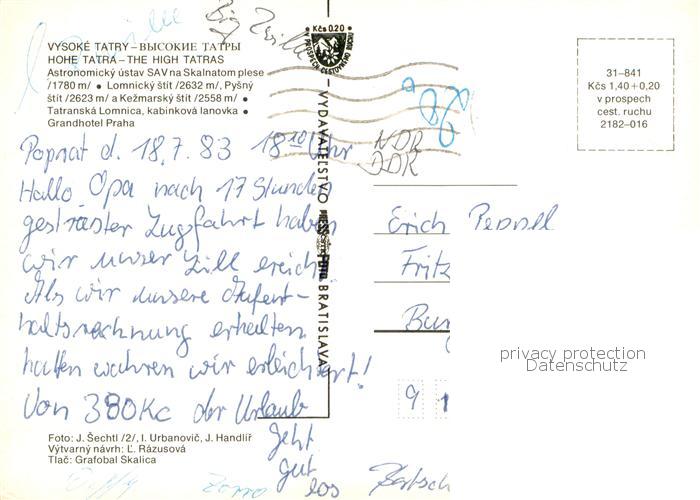 VYSOKÉ TATRY – ВЫСОКИЕ ТАТРЫ
HOHE TATRA – THE HIGH TATRAS
Astronomický ústav SAV na Skalnatom plese
/1780 m/ • Lomnický štít /2632 m/, Pyšný
štít /2623 m a Kežmarský štít /2558 m/ •
Tatranská Lomnica, kabínková lanovka •
Grandhotel Praha
Poprat d. 18.7.83 18¹⁰ Uhr
Hallo Opa nach 17 Stunden
gestraster Zugsfahrt haben
wir unser Zill ereicht.
Als wir unsere Aufent-
haltsrechnung erhalten
hatten wahren wir erleichtert!
Von 380 Kc der Urlaub
geht
gut
los
Foto: J. Šechtl /2/, I. Urbanovič, J. Handlíř
Výtvarný návrh: Ľ. Rázusová
Tlač: Grafobal Skalica
Zorro
VYDAVATEĽSTVO
BRATISLAVA
Kčs 0.20
31–841
Kčs 1,40 + 0,20
v prospech
cest. ruchu
2182–016
NDR
DDR
Erich
Fritz
9 1
privacy protection
Datenschutz